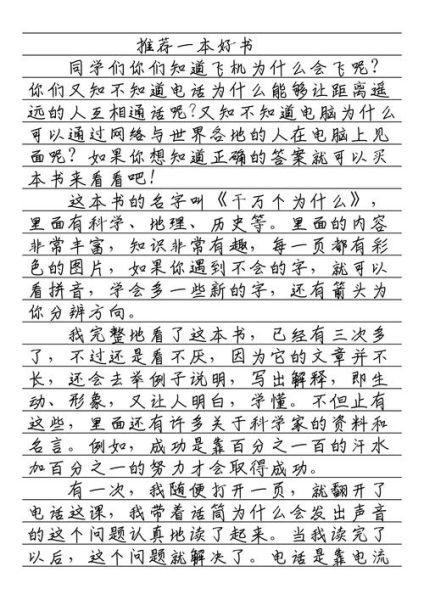 推荐一本好书
同学们你们知道飞机为什么会飞呢?
你们又知不知道电话为什么能够让距离遥
远的人互相通话呢?又知不知道电脑为什么
可以通过网络与世界各地的人在电脑上见
面呢? 如果你想知道正确的答案就可以买
本书来看看吧!
这本书的名字叫《千万个为什么》,
里面有科学、地理、历史等。里面的内容
非常丰富,知识非常有趣,每一页都有彩
色的图片,如果你遇到不会的字,就可以
看拼音,学会多一些新的字,还有箭头为
你分辨方向。
我完整地看了这本书,已经有三次多
了,不过还是看不厌,因为它的文章并不
长,还会去举例子说明,写出解释,即生
动、形象,又让人明白,学懂。不但止有
这些,里面还有许多关于科学家的资料和
名言。例如,成功是靠百分之一百的汗水
加百分之一的努力才会取得成功。
有一次,我随便打开一页,就翻开了
电话这课,我带着话筒为什么会发出声音
的这个问题认真地读了起来。当我读完了
以后,这个问题就解决了。电话是靠电流